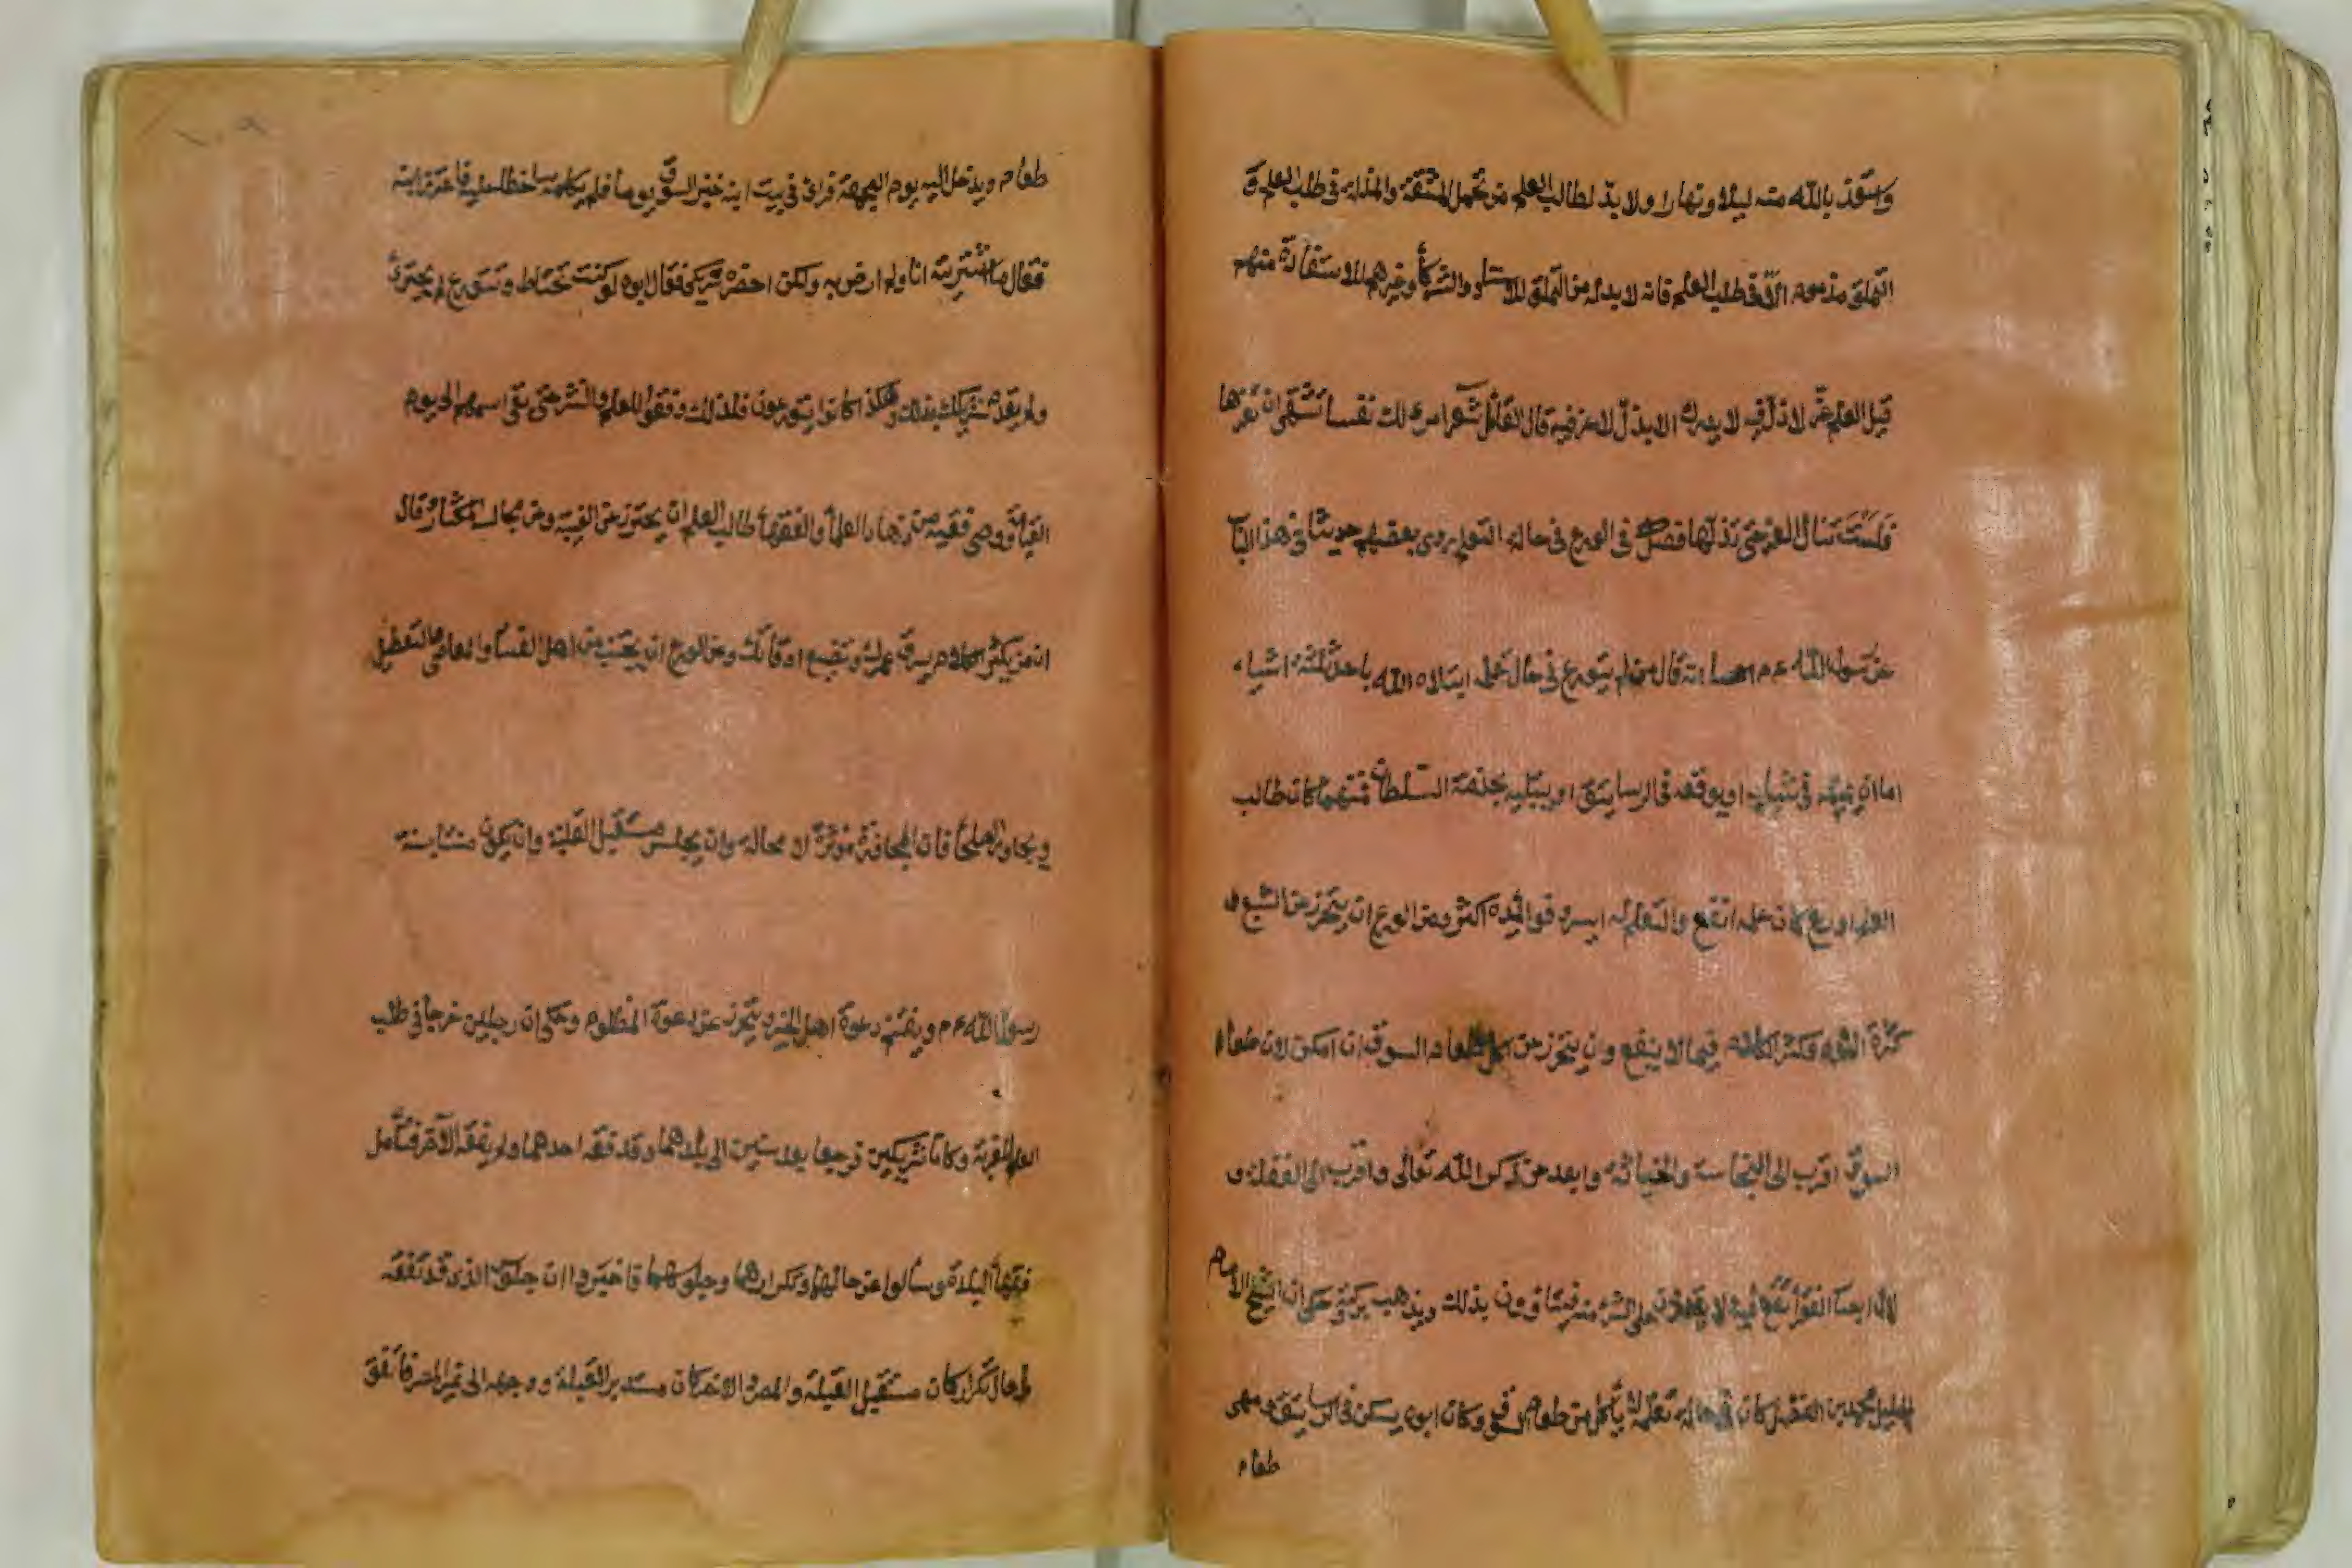 وتعوذ بالله منه ليلا ونهارا ولا بد لطالب العلم من تحمل المشقة والمذلة في طلب العلم و
التملق مذموم الا في طلب العلم فانه لا بدله من التملق للاستاد والشركاء وغيرهم للاستفادة منهم
قيل العلم عز لا ذل فيه لا يدرك الا بذل لا عز فيه قال القائل شعرا ارى لك نفسا تشتهى ان تعزها
فلست تنال العز حتى تذلها فصل في الورع في حالة التعلم روى بعضهم حديثا في هذا الباب
عن رسول الله عم انه قال من لم يتورع في حال تعلمه ابتلاه الله باحد ثلثة اشياء
اما ان يميته في شبابه او يوقعه في الرساتيق او يبتليه بخدمة السلطان فمهما كان طالب
العلم اورع كان علمه انفع والتعلم له ايسر وفوائده اكثر ومن الورع ان يتحرز عن الشبع و
كثرة النوم وكثرة الكلام فيما لا ينفع وان يتحرز من اكل طعام السوق ان امكن لان طعام
السوق اقرب الى النجاسة والخباثة وابعد من ذكر الله تعالى واقرب الى الغفلة و
لان ابصار الفقراء تقع عليه لا يقدرون على الشراء منه فيتاذون بذلك ويذهب بركته وحكى ان الشيخ الامام
الجليل محمد بن الفضل كان في حالة تعلمه لا ياكل من طعام السوق وكان ابوه يسكن في الرساتيق ويهيئ
طعام
طعام ويدخل اليه يوم الجمعة فراى في بيت ابنه خبز السوق يوما فلم يكلمه ساخطا عليه فاعتذر ابنه
فقال ما اشتريته انا ولم ارض به ولكن احضره شريكى فقال ابوه لو كنت تحتاط وتتورع لم يجترئ
ولم يقدم شريكك بذلك وهكذا كانوا يتورعون فلذلك وفقوا للعلم والنشر حتى بقى اسمهم الى يوم
القيامة ووصى فقيه من زهاد العلماء والفقهاء طالب العلم ان يحترز عن الغيبة وعن مجالسة المكثار وقال
ان من يكثر الكلام يسرق عمرك ويضيع اوقاتك ومن الورع ان يجتنب من اهل الفساد والمعاصى والتعطيل
ويجاور الصلحاء فان المجاورة مؤثرة لا محالة وان يجلس مستقبل القبلة وان يكون مستنا بسنة
رسول الله عم ويغتنم دعوة اهل الخير ويتحرز عن دعوة المظلوم وحكى ان رجلين خرجا في طلب
العلم للغربة وكانا شريكين فرجعا بعد سنين الى بلدهما وقد فقه احدهما ولم يفقه الآخر فتأمل
فقهاء البلدة وسألوا عن حالهما وتكرارهما وجلوسهما فاخبروا ان جلوس الذي قد تفقه
في حال تكرار كان مستقبل القبلة والمصر والاخر كان مستدبر القبلة ووجهه الى غير المصر فاتفق